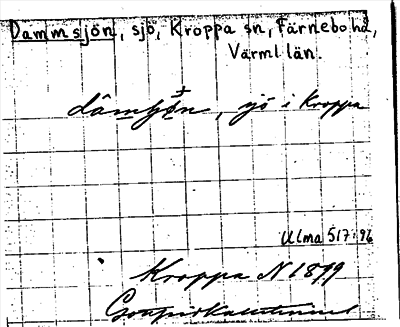 Dammsjön, sjö, Kroppa sn, Färnebo hd,
Värml län.
sjö i Kroppa
Ulma 517:96
Kroppa N 1899